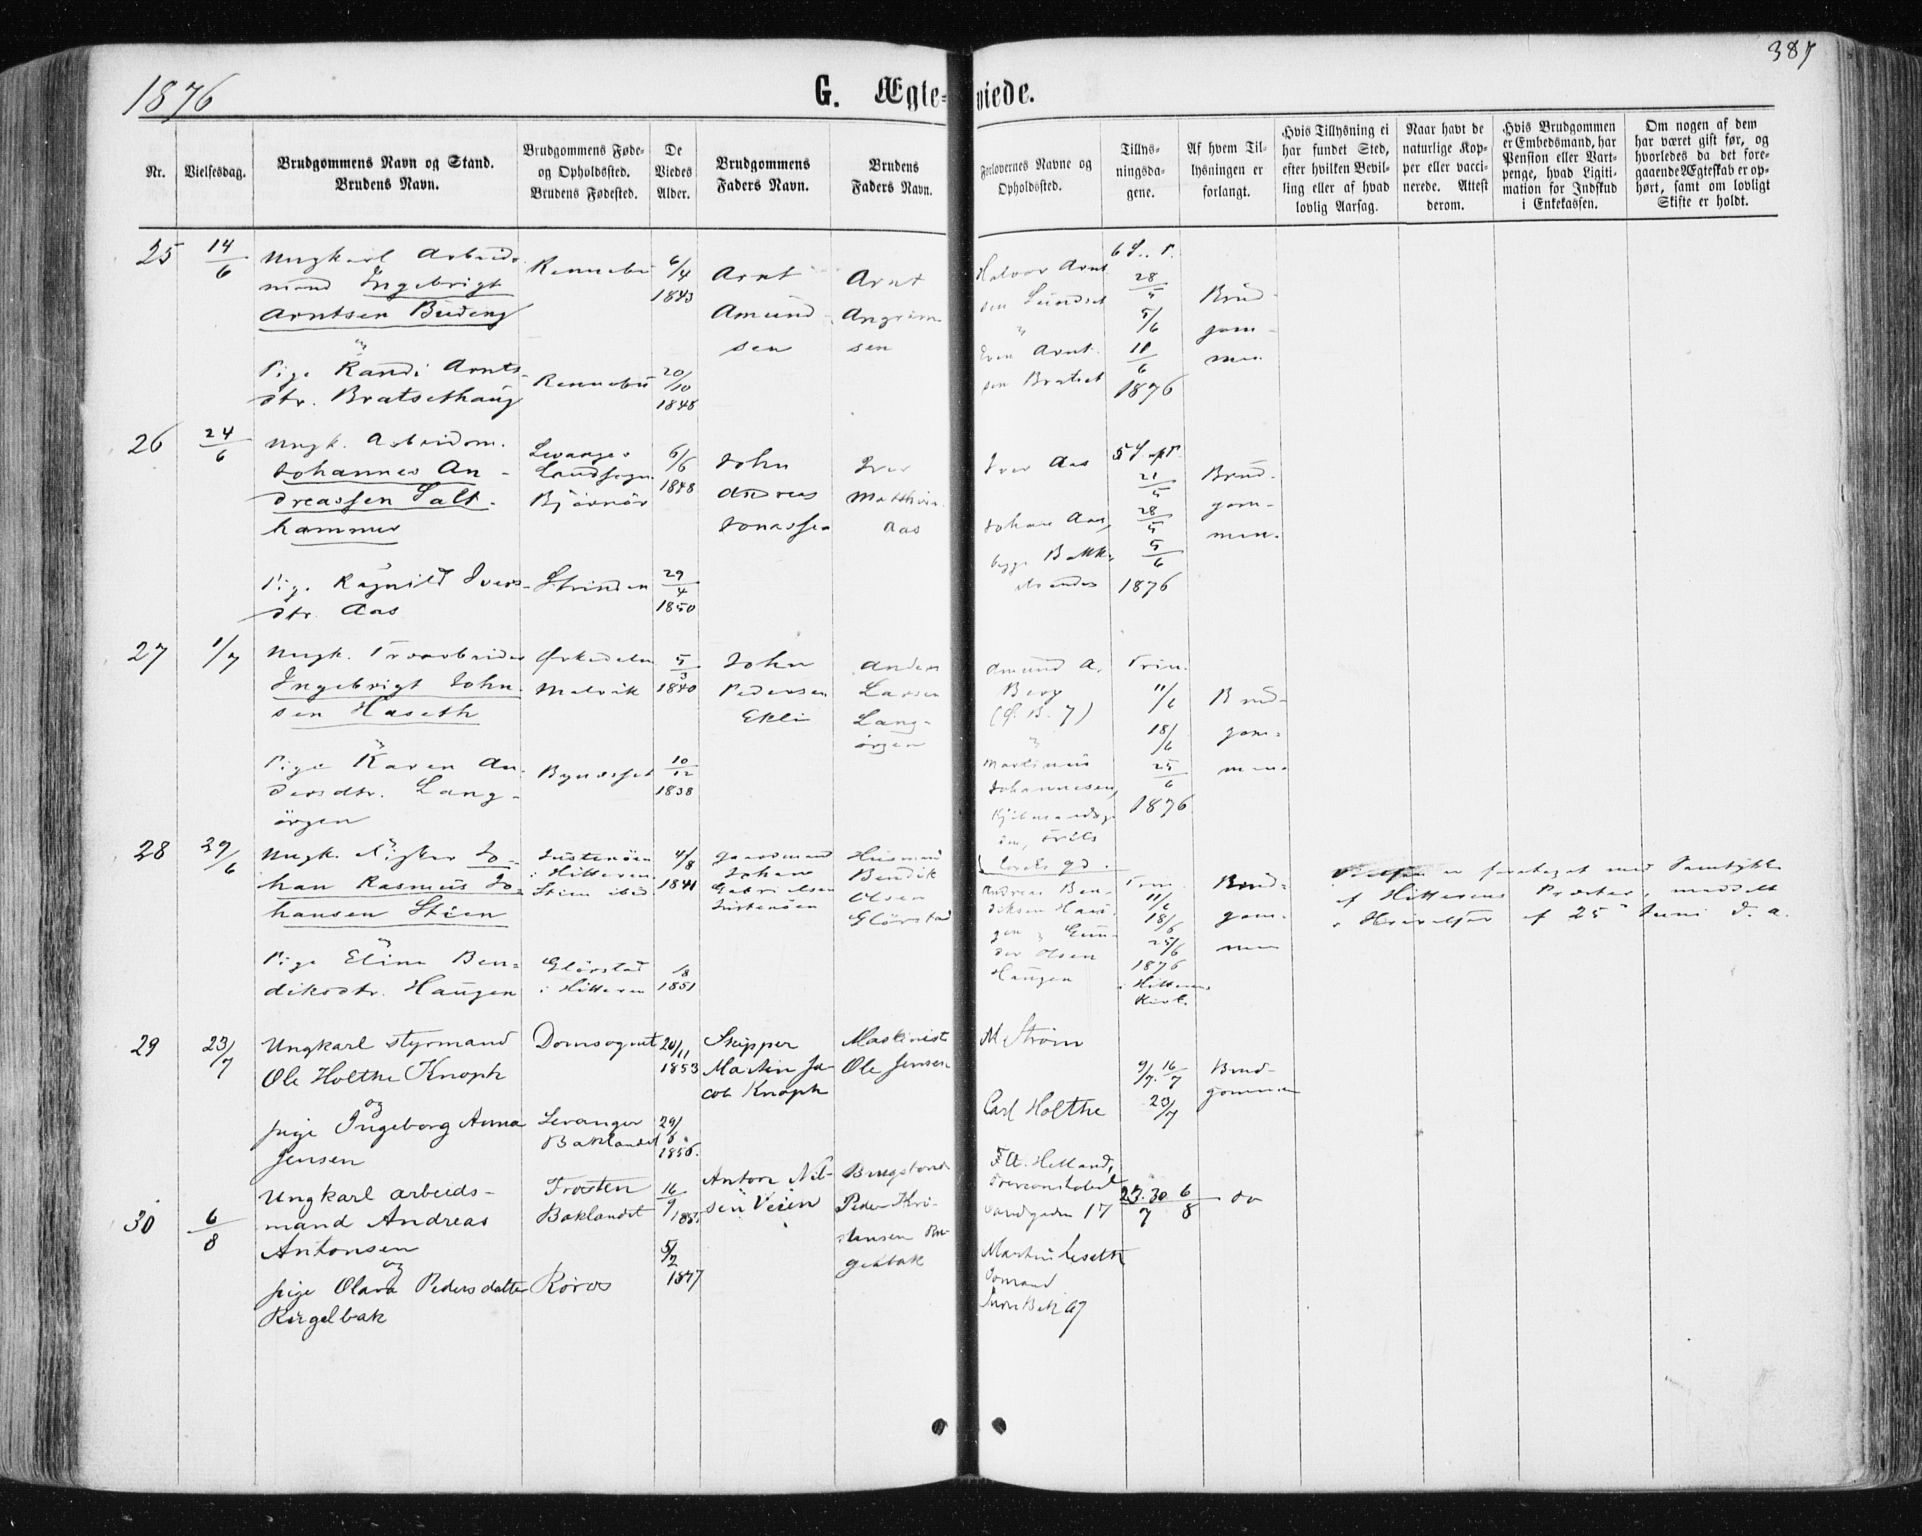 1876
G. Ægte-viede.
387
Nr.
Vielsesdag.
Brudgommens Navn og Stand.
Brudens Navn.
Brudgommens Føde-
og Opholdssted.
Brudens Fødested.
De
Viedes
Alder.
Brudgommens
Faders Navn.
Brudens
Faders Navn.
Forlovernes Navne og
Opholdssted.
Tillys-
ningsda-
gene.
Af hvem Til-
lysningen er
forlangt.
Hvis Tillysning ei
har fundet Sted,
efter hvilken Bevil-
ling eller af hvad
lovlig Aarsag.
Naar havt de
naturlige Kop-
per eller vacci-
nerede. Attest
derom.
Hvis Brudgommen
er Embedsmand, har
Pension eller Vart-
penge, hvad Ligiti-
mation for Indskud
i Enkekassen.
Om nogen af dem
har været gift før, og
hvorledes da det fore-
gaaende Ægteskab er op-
hørt, samt om lovligt
Skifte er holdt.
25
14/6
Ungkarl Arbeids
mand Ingebrigt
Arntsen Budeng
Pige Randi Arnts
dtr. Bratsethaug
Rennebu
Rennebu
6/4
1843
20/10
1848
Arnt
Amund
sen
Arnt
Angrim
sen
Halvor Arnt
sen Lundset
Even Arnt
sen Bratset
28/5
5/6
11/6
1876
Brud-
gom-
men
26
24/6
Ungk. Arbeidsm.
Johannes An-
dreassen Salt-
hammer
Pige Ragnild Ivers
dtr. Aas
Levanger
Landsogn
Bjørnør
Strinden
6/6
1848
29/4
1850
John
Andreas
Jonassen
Iver
Aas
Iver Aas
Johan Aas,
21/5
28/5
5/6
1876
Brud-
gom-
men.
27
1/7
Ungk.
Ingebrigt John-
sen Haseth
Pige Karen An-
dersdtr. Lang-
örgen
Ørkedalen
Malvik
Bynesset
5/3
1840
10/12
1838
John
Pedersen
Ekli
Anders
Larsen
Lang-
örgen
Amund A.
Berg
(Ø. B. 7)
Martinus
Johannesen,
Trin.
11/6
18/6
25/6
1876
Brud-
gom-
men
28
29/6
Ungk. Jo-
han Rasmus Jo-
hansen Stien
Pige Eline Ben-
diksdtr. Haugen
i Hitteren
Stien ibid
Glörstad
i Hitteren
4/8
1841
1851
Gaardmand
Johan
Gabrielsen
Husmand
Bendik
Olsen
Glörstad
Andreas Ben-
diksen Hau-
gen & Gun-
der Olsen
Haugen
Trin.
11/6
18/6
25/6
1876
i Hitterens
Kirke
Brud-
gom-
men
er foretaget med Samtykke
af Hitterens Præster, meddelt
af 25 Juni d. a.
29
23/7
Ungkarl styrmand
Ole Holthe Knoph
og
pige Ingeborg Anna
Jensen
Domsognet
Levanger
Baklandet
20/11
1853
29/6
1856.
Skipper
Martin Ja-
cob Knoph
Maskinist
Ole Jensen
M Strøm
Carl Holthe
9/7. 16/7
23/7
Brud-
gommen
30
6/8
Ungkarl arbeids-
mand Andreas
Antonsen
og
pige Olava Pedersdatter
Kirgelbak
Frosten
Baklandet
Røros
16/9
5/2
1847
Anton Nil-
sen Veien
Peder Kri-
stensen
F.A. Helland,
Sandgaden 17
23. 30/7 6/8
do